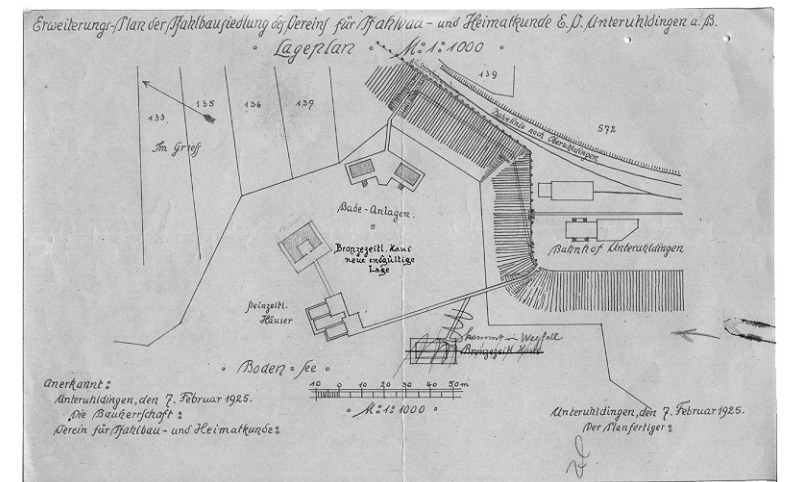 Erweiterungs-Plan der Pfahlbausiedlung des Vereins für Pfahlbau- und Heimatkunde E.V. Unteruhldingen a. B.
Lageplan M: 1: 1000
139
133 135 136 137
572
Bahnlinie nach Oberuhldingen
Im Grieß
Bade-Anlagen.
Bahnhof Unteruhldingen
Bronzezeitl. Haus
neue endgültige
Lage
Steinzeitl.
Häuser
kommt in Wegfall
Bronzezeitl. Haus
Boden=see
10 0 10 20 30 40 50m
M: 1: 1000
Anerkannt:
Unteruhldingen, den 7. Februar 1925.
Die Bauherrschaft:
Verein für Pfahlbau- und Heimatkunde:
Unteruhldingen, den 7. Februar 1925.
Der Planfertiger: